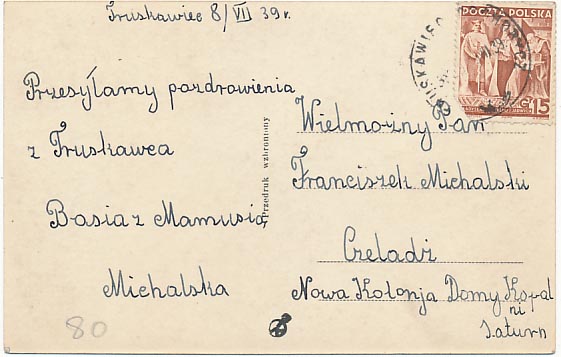 Truskawiec 8/VII 39 r.
Przesyłamy pozdrowienia
z Truskawca
Basia z Mamusią
Michalska
80
Przedruk wzbroniony
POCZTA POLSKA
15
Wielmożny Pan
Franciszek Michalski
Czeladź
Nowa Kolonja Domy Kopal
ni
Saturn